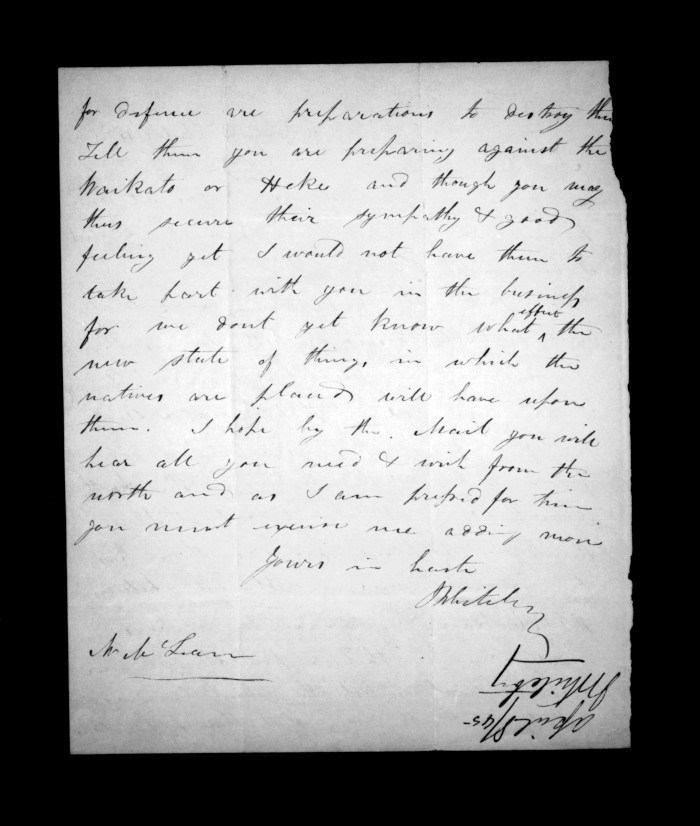 for defence are preparations to destroy them
Tell them you are preparing against the
Waikato or Heke and though you may
thus secure their sympathy & good
feeling yet I would not have them to
take part with you in the business
for we dont yet know what effect the
new state of things in which the
natives are placed will have upon
them. I hope by the Mail you will
hear all you need & wish from the
north and as I am pressed for time
you must excuse me adding more
Yours in haste
J Whiteley
Mr McLean
J Whiteley
April 8/45